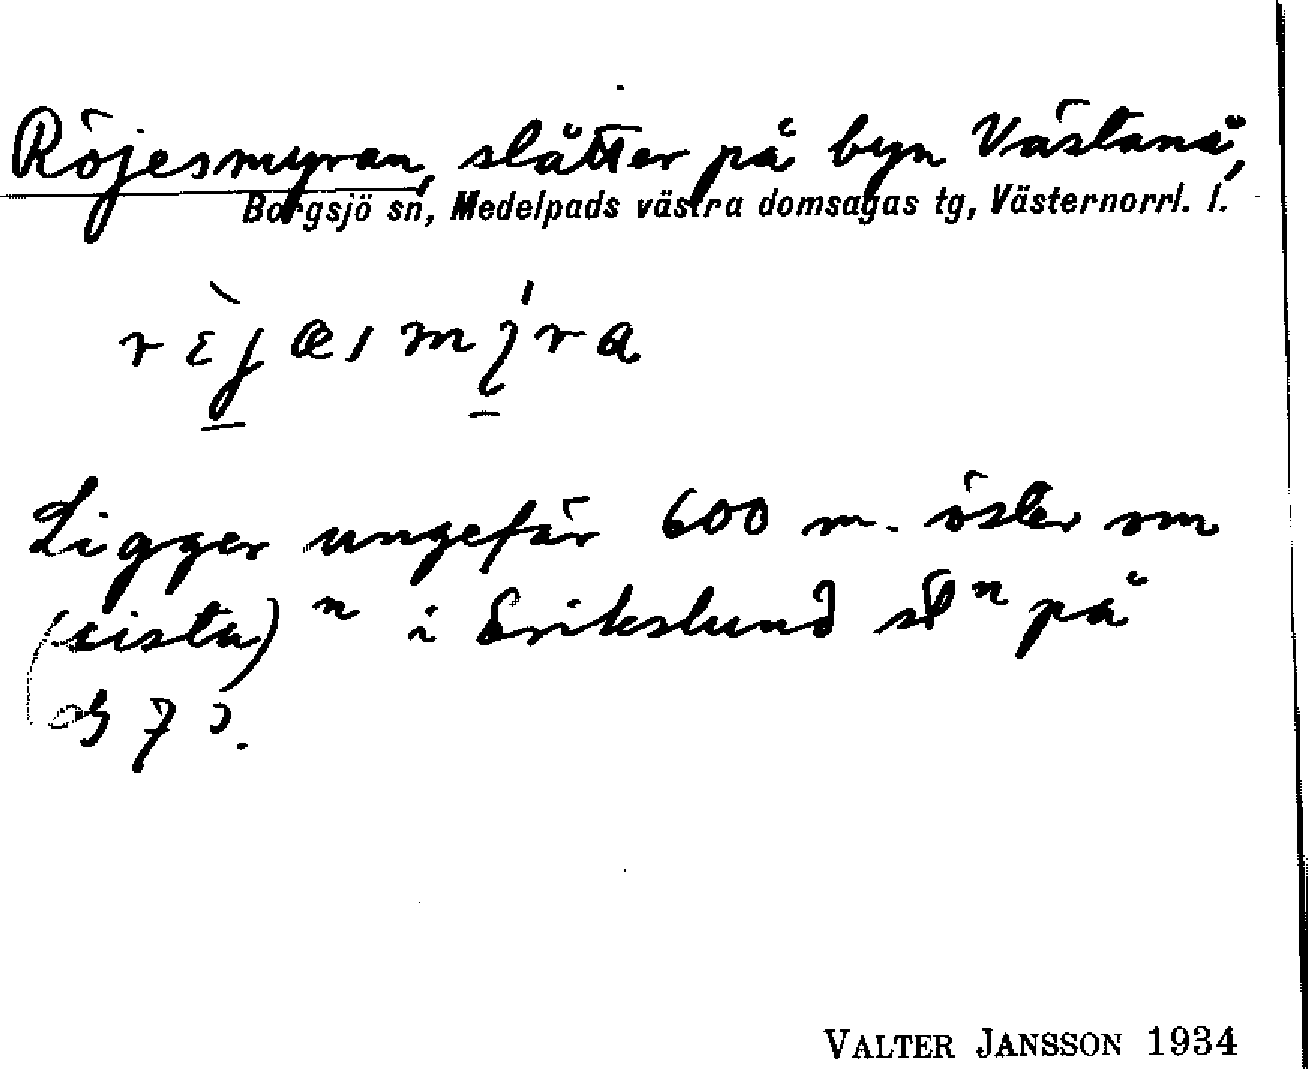 Röjesmyran, slåtter på byn Västanå,
Borgsjö sn, Medelpads västra domsagas tg, Västernorrl. l.
Ligger ungefär 600 m. öster om
(sista) n i Erikslund på
VALTER JANSSON 1934